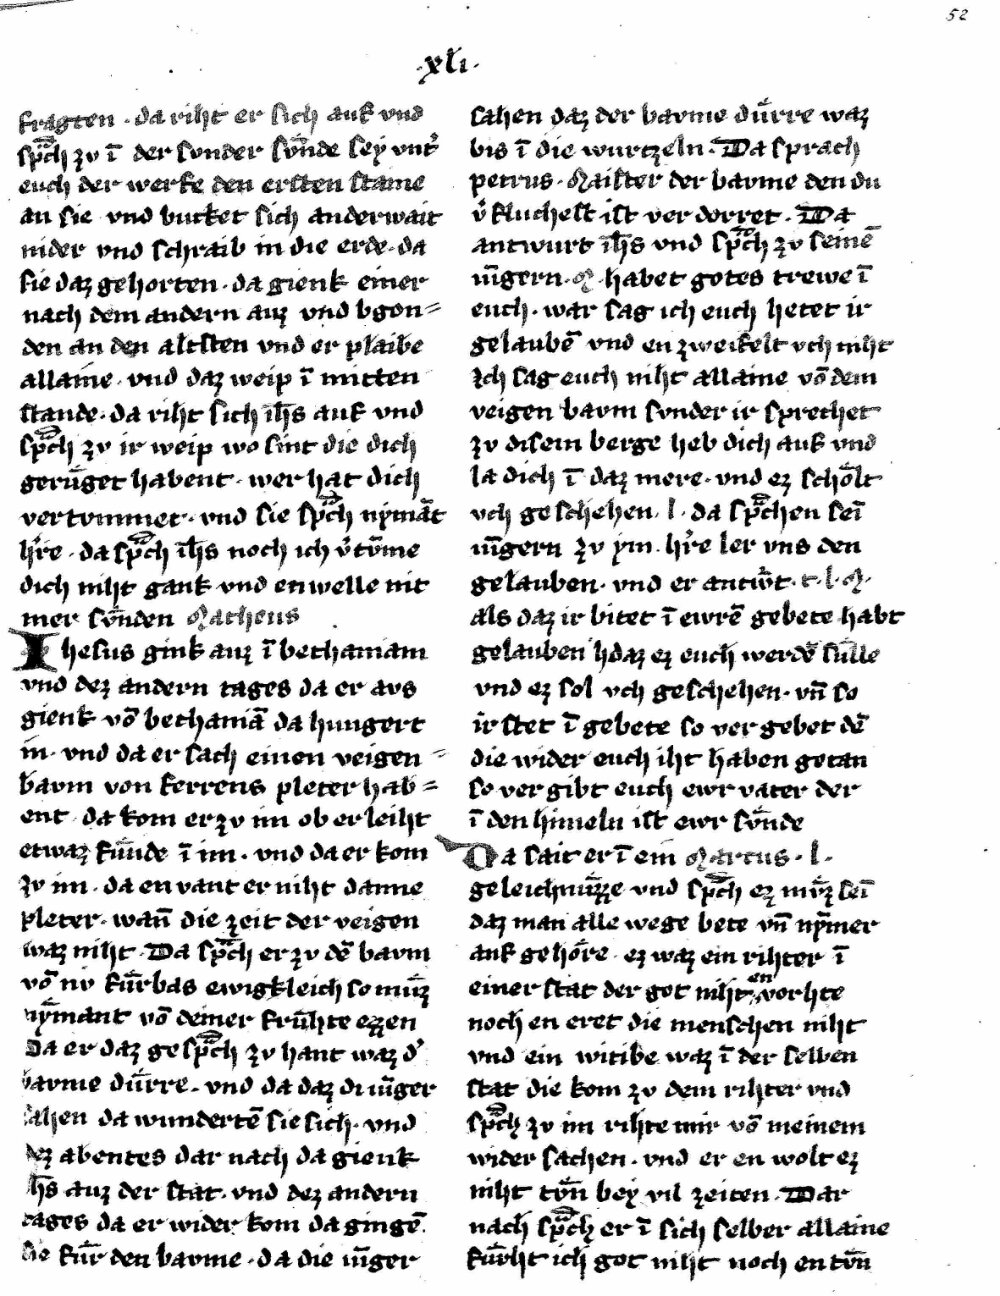 52
·xli·
fragten · da riht er sich auf vnd
sp͛ch zv ī der svnder svͤnde sey vnt͛
euch der werfe den ersten staine
an sie · vnd bucket sich anderwait
nider vnd schraib in die erde · da
sie daz gehorten · da gienk einer
nach dem andern auz vnd bgon=
den an den altsten vnd er plaibe
allaine · vnd daz weip ī mitten
stande · da riht sich ih̄s auf vnd
sp͛ch zv ir weip wo sint die dich
gerüget habent · wer hat dich
vertvmmet · vnd sie sp͛ch nymāt
h͛re · da sp͛ch ih̄s noch ich v͛tv̄me
dich niht gank vnd enwelle nit
mer svͤnden Matheus
Ihesus gink auz ī bethaniam
vnd dez andern tages da er avs
gienk vō bethaniā da hungert
in · vnd da er sach einen veigen=
bavm von ferrens pleter hab=
ent · da kom er zv im ob er leiht
etwaz fuͤnde ī im · vnd da er kom
zv im · da en vant er niht danne
pleter · wan̄ die zeit der veigen
waz niht · Da sp͛ch er zv dē bavm
vō nv fuͤrbas ewigkleich so muͤz
nyͤmant vō deiner fruͤhte ezzen
Da er daz gesp͛ch zv hant waz d͛
bavme duͤrre · vnd da daz di iūger
sahen da wundertē sie sich · vnd
dez abentes dar nach da gienk
ih̄s auz der stat · vnd dez andern
tages da er wider kom da gingē
die fuͤr den bavme · da die iūger
sahen daz der bavme duͤrre waz
bis ī die wurtzeln · Da sprach
petrus · Maister der bavme den du
v͛fluchest ist ver dorret · Da
antwurt ih̄s vnd sp͛ch zv seinē
iūgern · M · habet gotes trewe ī
euch · war sag ich euch hetet ir
gelaubē vnd en zweifelt vch niht
Ich sag euch niht allaine vō dem
veigen bavm svnder ir sprechet
zv disem berge heb dich auf vnd
la dich ī daz mere · vnd ez schoͤlt
vch geschehen · l · da sp͛chen sei
iūgern zv ym · h͛re ler vns den
gelauben · vnd er antw͛t · t · l · M ·
als daz ir bitet ī ewrē gebete habt
gelauben daz ez euch werdē sulle
vnd ez sol vch geschehen · vn̄ so
ir stet ī gebete so ver gebet dē
die wider euch iht haben getan
so vergibt euch ewr vater der
ī den himeln ist ewr svͤnde
Da sait er ī ein Marcus · l ·
geleichnuͤzze vnd sp͛ch ez muͤz sei
daz man alle wege bete vn̄ nyͤmer
auf gehoͤre · ez waz ein rihter ī
einer stat der got niht en vorhte
noch en eret die menschen niht
vnd ein witibe waz ī der selben
stat die kom zv dem rihter vnd
sp͛ch zv im rihte mir vō meinem
wider sachen · vnd er en wolt ez
niht tvͤn bey vil zeiten · Dar
nach sp͛ch er ī sich selber allaine
fuͤrht ich got niht noch en tvͤn